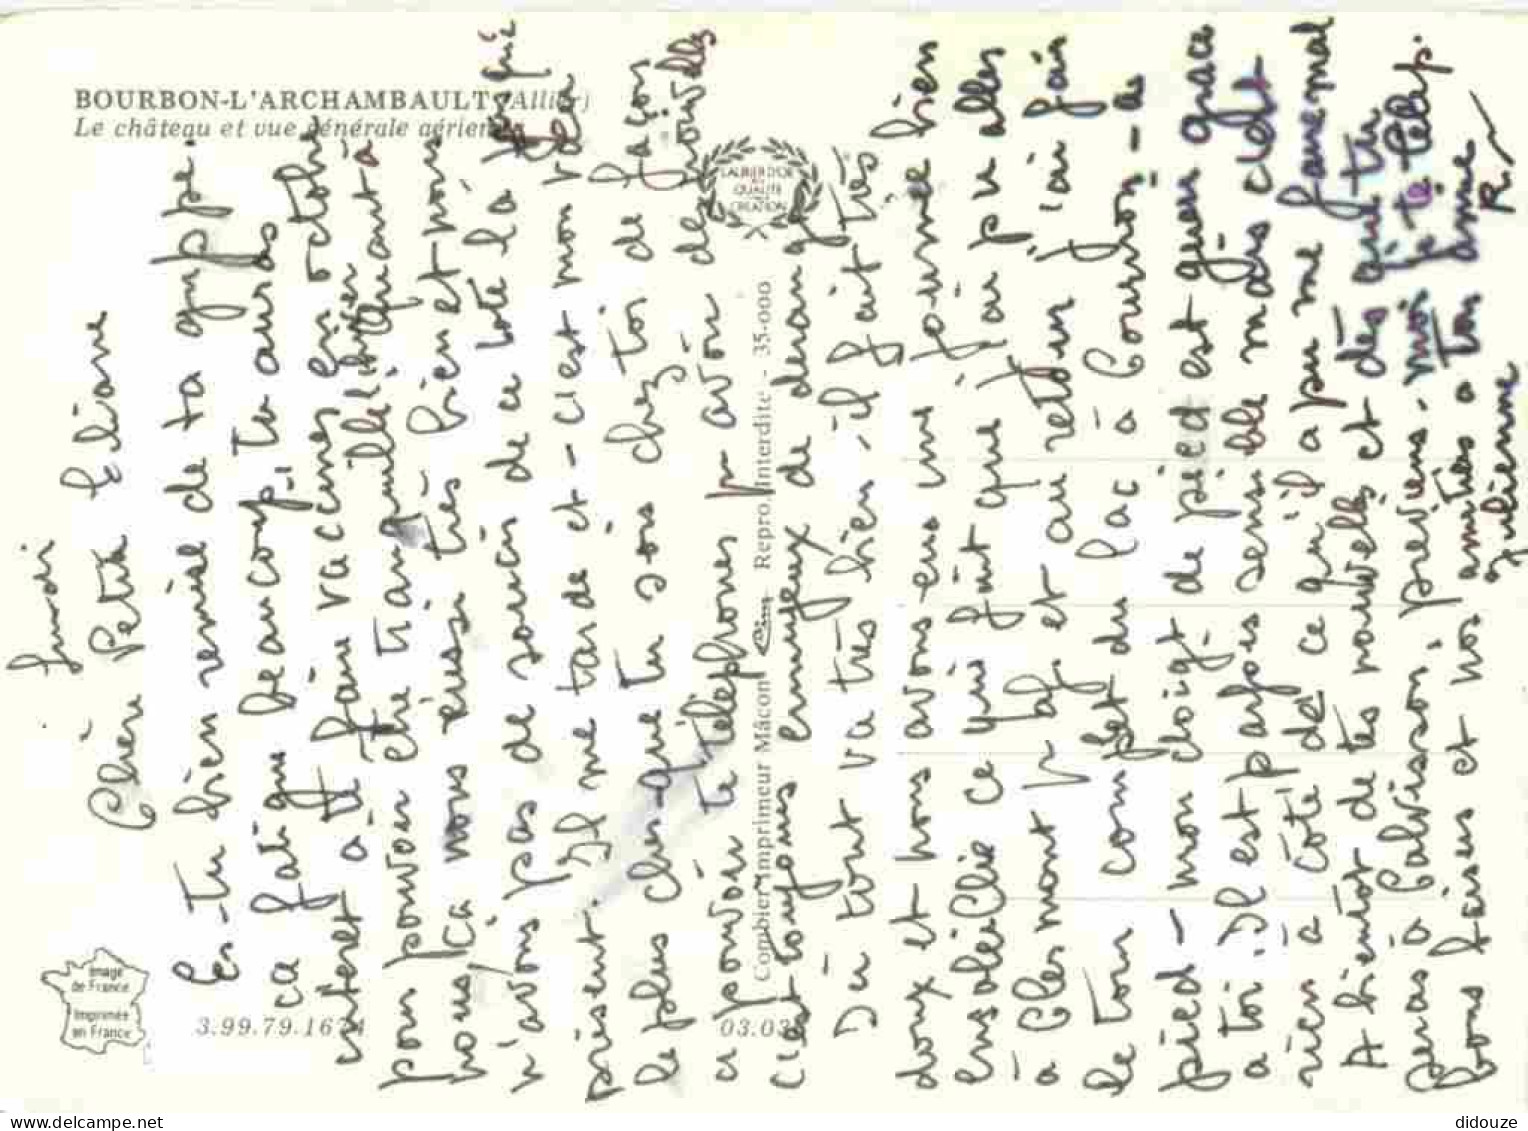 BOURBON-L'ARCHAMBAULT (Allier)
Le château et vue générale aérienne
LAURIER D'OR
QUALITÉ
CRÉATION
Image
de France
Imprimée
en France
3.99.79.1674
03.03
Combier Imprimeur Mâcon Repro. Interdite - 35-000
Lundi
Chère Petite Eliane
Es-tu bien remise de ta grippe.
ça fatigue beaucoup, tu auras
intérêt à te faire vacciner en octobre
pour pouvoir être tranquille l'hiver quant à
nous ça nous réussi très bien et nous
n'avons pas de souci de ce côté là
présent. Il me tarde et - c'est mon
le plus cher - que tu sois chez toi de façon
a pouvoir te téléphoner pr avoir des nouvelles
c'est toujours ennuyeux de déranger
Du tout va très bien, il fait très
doux et nous avons eu une journée bien
ensoleillée ce qui fait que j'ai pu aller
à Clermont et au retour j'ai fais
le tour complet du lac à Cournon - à
pied - mon doigt de pied est guéri grace
a toi. Il est parfois sensible mais c'est
rien à côté de ce qu'il a pu me faire mal
A bientôt de tes nouvelles et dès que tu
seras à Calvisson, préviens-moi je te télép.
bons baisers et nos amitiés a ton amie
R.
Julienne
delcampe.net
didouze